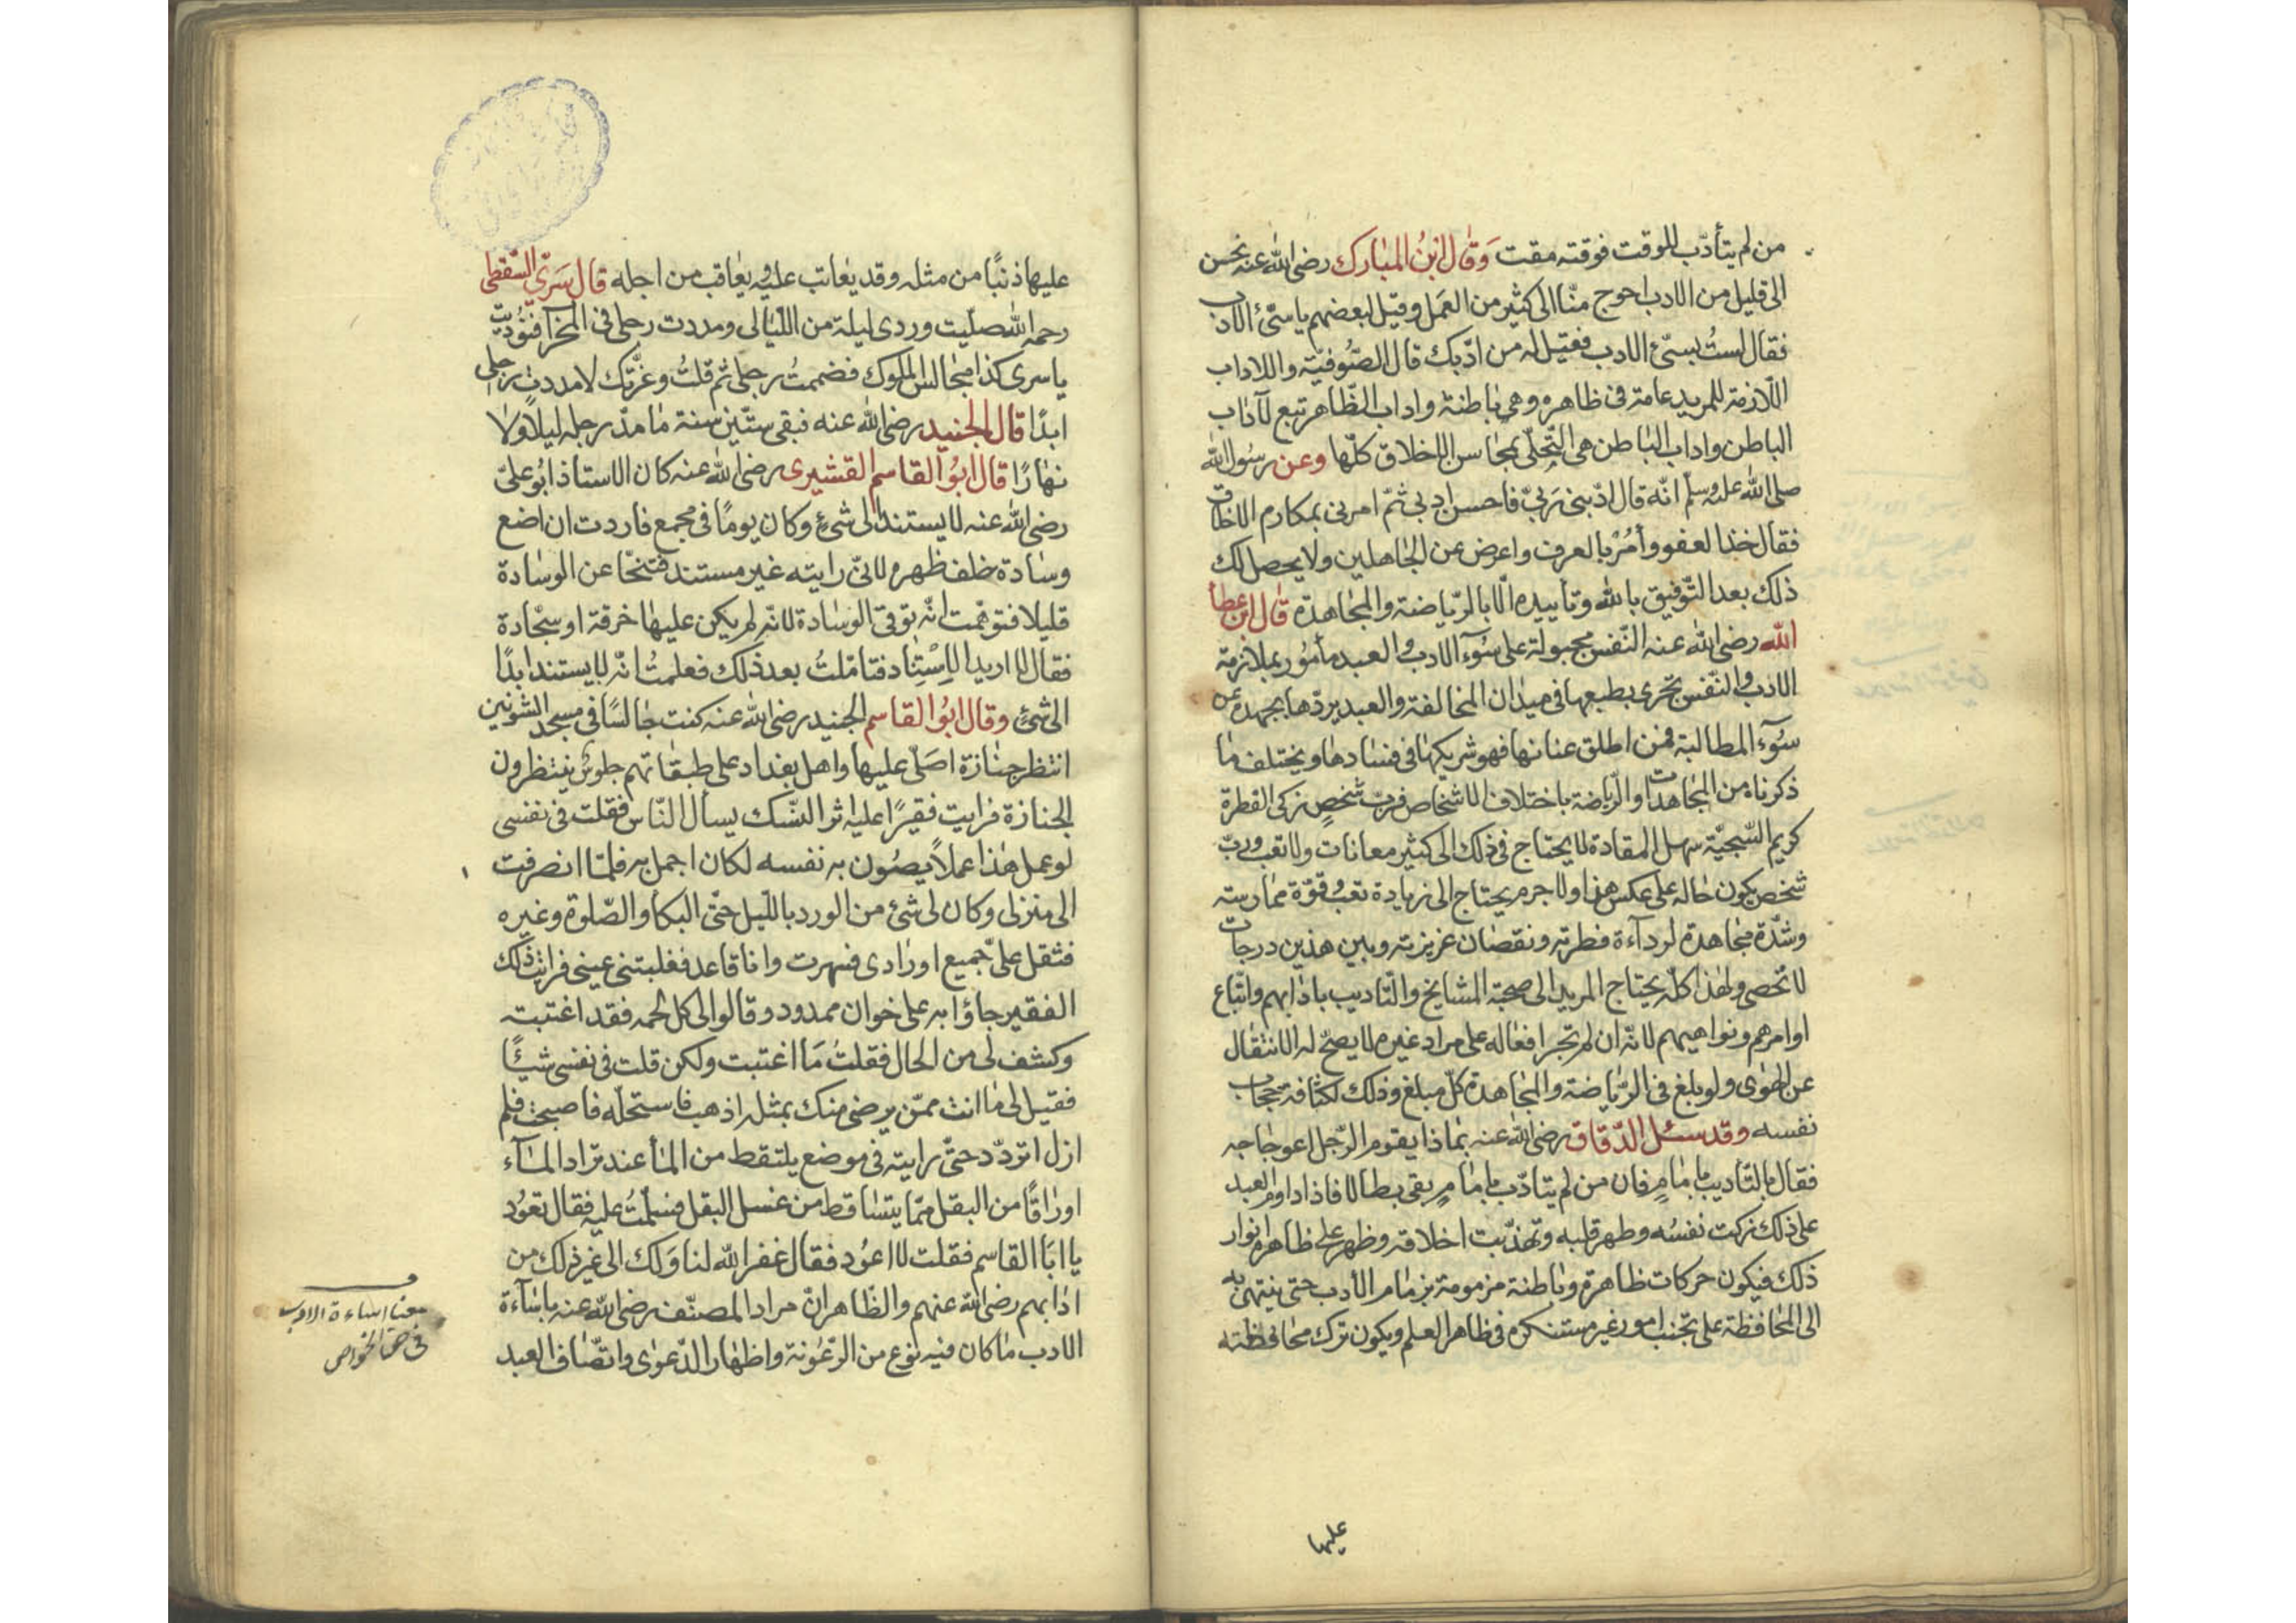 من لم يتأدّب للوقت فوقته مقت وَقال ابنُ المبارك رضى الله عنه نحن
الى قليل من الادب احوج منّا الى كثير من العَمل وقيل لبعضهم يا سيّئ الادب
فقال لستُ بسيّئ الادب فقيل له من ادّبك قال الصّوفيّة واللاداب
اللّازمة للمريد عامة فى ظاهره وهى باطنة واداب الظّاهر تبع لآداب
الباطن واداب الباطن هى التّحلّى بمحاسن الاخلاق كلّها وعن رسُول الله
صلى الله عليه وسلم انّه قال ادّبنى ربىّ فاحسن ادبى ثمّ امرنى بمكارم الاخلاق
فقال خذ العفو وأمُرْ بالعرف واعرض عن الجاهلين ولا يحصل لك
ذلك بعد التّوفيق بالله وتأييده الّا بالرّياضة والمجاهدة قال ابن عطأ
الله رضى الله عنه النّفس مجبولة على سُوء الادب والعبد مأمُور بملازمة
الادب والنّفس تجرى بطبعها فى ميدان المخالفة والعبد يردّها بجهده عن
سُوء المطالبة فمن اطلق عنانها فهو شريكها فى فسادها ويختلف ما
ذكرناه من المجاهدات والرّياضة باختلاف الاشخاص فربّ شخصٍ زكى الفطرة
كريم السّجيّة سهل المقادة لا يحتاج فى ذلك الى كثير معانات ولا تعب وربّ
شخص يكون حاله على عكس هذا ولا جرم يحتاج الى زيادة تعب وقوّة ممارسته
وشدّة مجاهدة لردآءة فطرته ونقصان غريزته وبين هذين درجات
لا تحصى ولهذا كلّه يحتاج المريد الى صحبة المشايخ والتّاديب باذابهم واتّباع
اوامرهم ونواهيهم لانّه ان لم تجر افعاله على مراد غيره لا يصحّ له الانتقال
عن الهوى ولو بلغ فى الرّياضة والمجاهدة كلّ مبلغ وذلك لكثافة حجاب
نفسه وقد سئل الدّقاق رضى الله عنه بماذا يقوم الرّجل اعوجاجه
فقال بالتّاديب بامامٍ فان من لم يتادّب بامامٍ بقى بطالا فاذا داوم العبد
على ذلك زكت نفسُه وطهر قلبه وتهذّبت اخلاقه وظهر على ظاهره انوار
ذلك فيكون حركات ظاهرة وباطنة مزمومة بزمام الأدب حتى ينتهى به
الى المحافظة على تجنب امور غير مستنكرة فى ظاهر العلم ويكون ترك محافظته
عليها
عليها ذنبًا من مثله وقد يعاتب عليه ويعاقب من اجله قال سَرىّ السّقطى
رحمه الله صلّيت وردى ليلة من اللّيالى ومددت رجلى فى المحراب فنُوديت
يا سرى كذا مجالس الملوك فضممتُ رجلى ثم قلتُ وعزّتك لا مددت رجلى
ابدًا قال الجنيد رضى الله عنه فبقى ستّين سنة ما مدّ رجله ليلًا ولا
نهارًا قال ابُو القاسم القشيرى رضى الله عنه كان الاستاذ ابُو علىّ
رضى الله عنه لا يستند الى شئٍ وكان يومًا فى مجمع فاردت ان اضع
وسادة خلف ظهره لانىّ رايته غير مستند فتنحّا عن الوسادة
قليلا فتوهّمت انّه توقى الوسادة لانّه لم يكن عليها خرقة او سجّادة
فقال لا اريد الإسْتِناد فتامّلتُ بعد ذلك فعلمتُ انّه لا يستند ابدًا
الى شئٍ وقال ابُو القاسم الجنيد رضى الله عنه كنت جالسًا فى مسجد الشونين
انتظر جنازة اصَلّى عليها واهل بغداد على طبقاتهم جلوسٌ ينتظرون
الجنازة فرايت فقيرًا عليه اثر النّسك يسأل النّاس فقلت فى نفسى
لو عمل هٰذا عملاً يصُون به نفسه لكان اجمل به فلمّا انصرفت
الى منزلى وكان لى شئ من الورد بالليل حتّى البكأ والصّلوة وغيره
فثقل علىّ جميع اورادى فسهرت وانا قاعد فغلبتنى عينى فرايت ذلك
الفقير جاؤا به على خوان ممدود وقالوا لى كل لحمه فقد اغتبته
وكشف لى من الحال فقلتُ مَا اغتبت ولكن قلت فى نفسى شيئًا
فقيل لى ما انت ممّن يرضى منك بمثله اذهب فاستحلّه فاصبحت فلم
ازل اتردّد حتّى رايته فى موضع يلتقط من المأ عند تراد المآء
اوراقًا من البقل ممّا يتساقط من غسل البقل فسلّمتُ عليه فقال تعوُد
يا ابَا القاسم فقلت لا اعوُد فقال غفر الله لنا وَلك الى غير ذلك من
اذابهم رضى الله عنهم والظّاهر انّ مراد المصنّف رضى الله عنه باسآءة
الادب ما كان فيه نوع من الرّعونة واظهار الدّعوى واتّصاف العبد
معنا اساءة الادب
فى حق الخواص